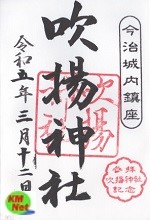 今治城内鎮座
吹揚神社
令和五年三月十二日
吹揚
神社
参拝
吹揚神社
記念
KM
Net